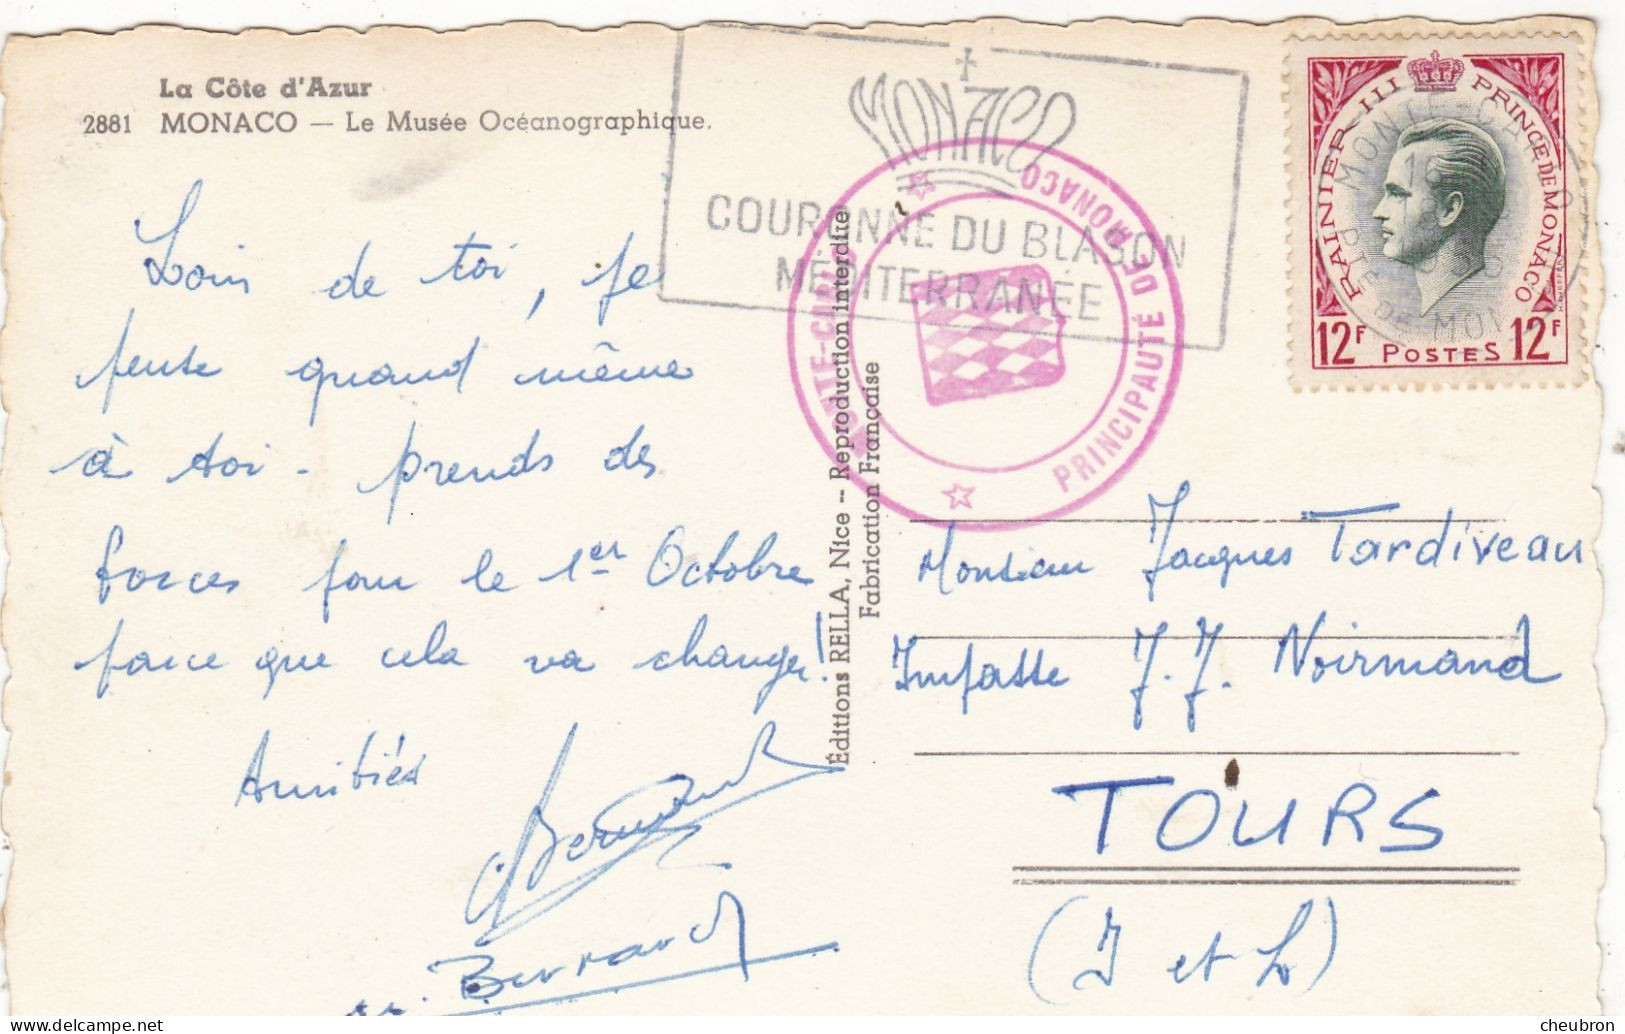 La Côte d'Azur
2881 MONACO — Le Musée Océanographique.
Loin de toi, je
pense quand même
à toi - prends des
forces pour le 1er Octobre
parce que cela va changer!
Amitiés
Bernard
Éditions RELLA, Nice -- Reproduction interdite
Fabrication Française
MONACO
COURONNE DU BLASON
MÉDITERRANÉE
MONTE-CARLO
PRINCIPAUTÉ DE MONACO
RAINIER III PRINCE DE MONACO
12F POSTES 12F
MONTE-CARLO
PTE DE MONACO
Monsieur Jacques Tardiveau
Impasse J.J. Noirmand
TOURS
(I et L)
cheubron @ delcampe.net